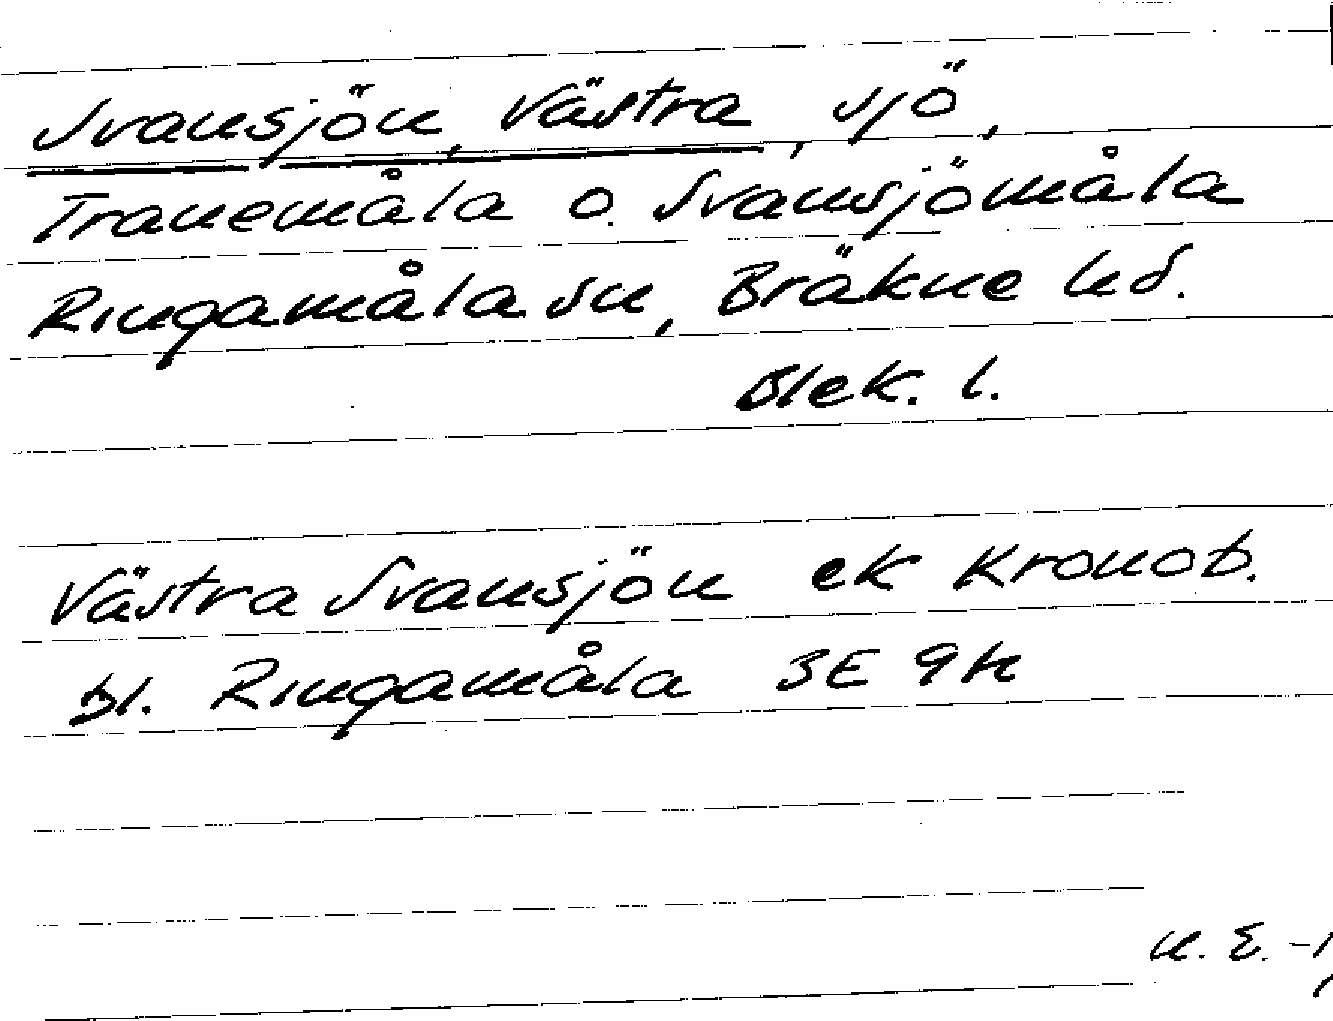 Svansjön, Västra, sjö,
Tranemåla o. Svansjömåla
Ringamåla sn, Bräkne hd.
Blek. l.
Västra Svansjön ek Kronob.
bl. Ringamåla 3E 9h